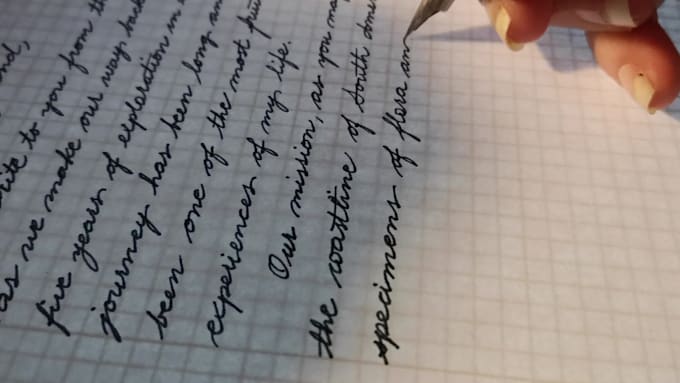 to you from
as we make our way
five years of exploration
journey has been long
been one of the most
experiences of my life.
Our mission, as you
the coastline of South
specimens of flora an